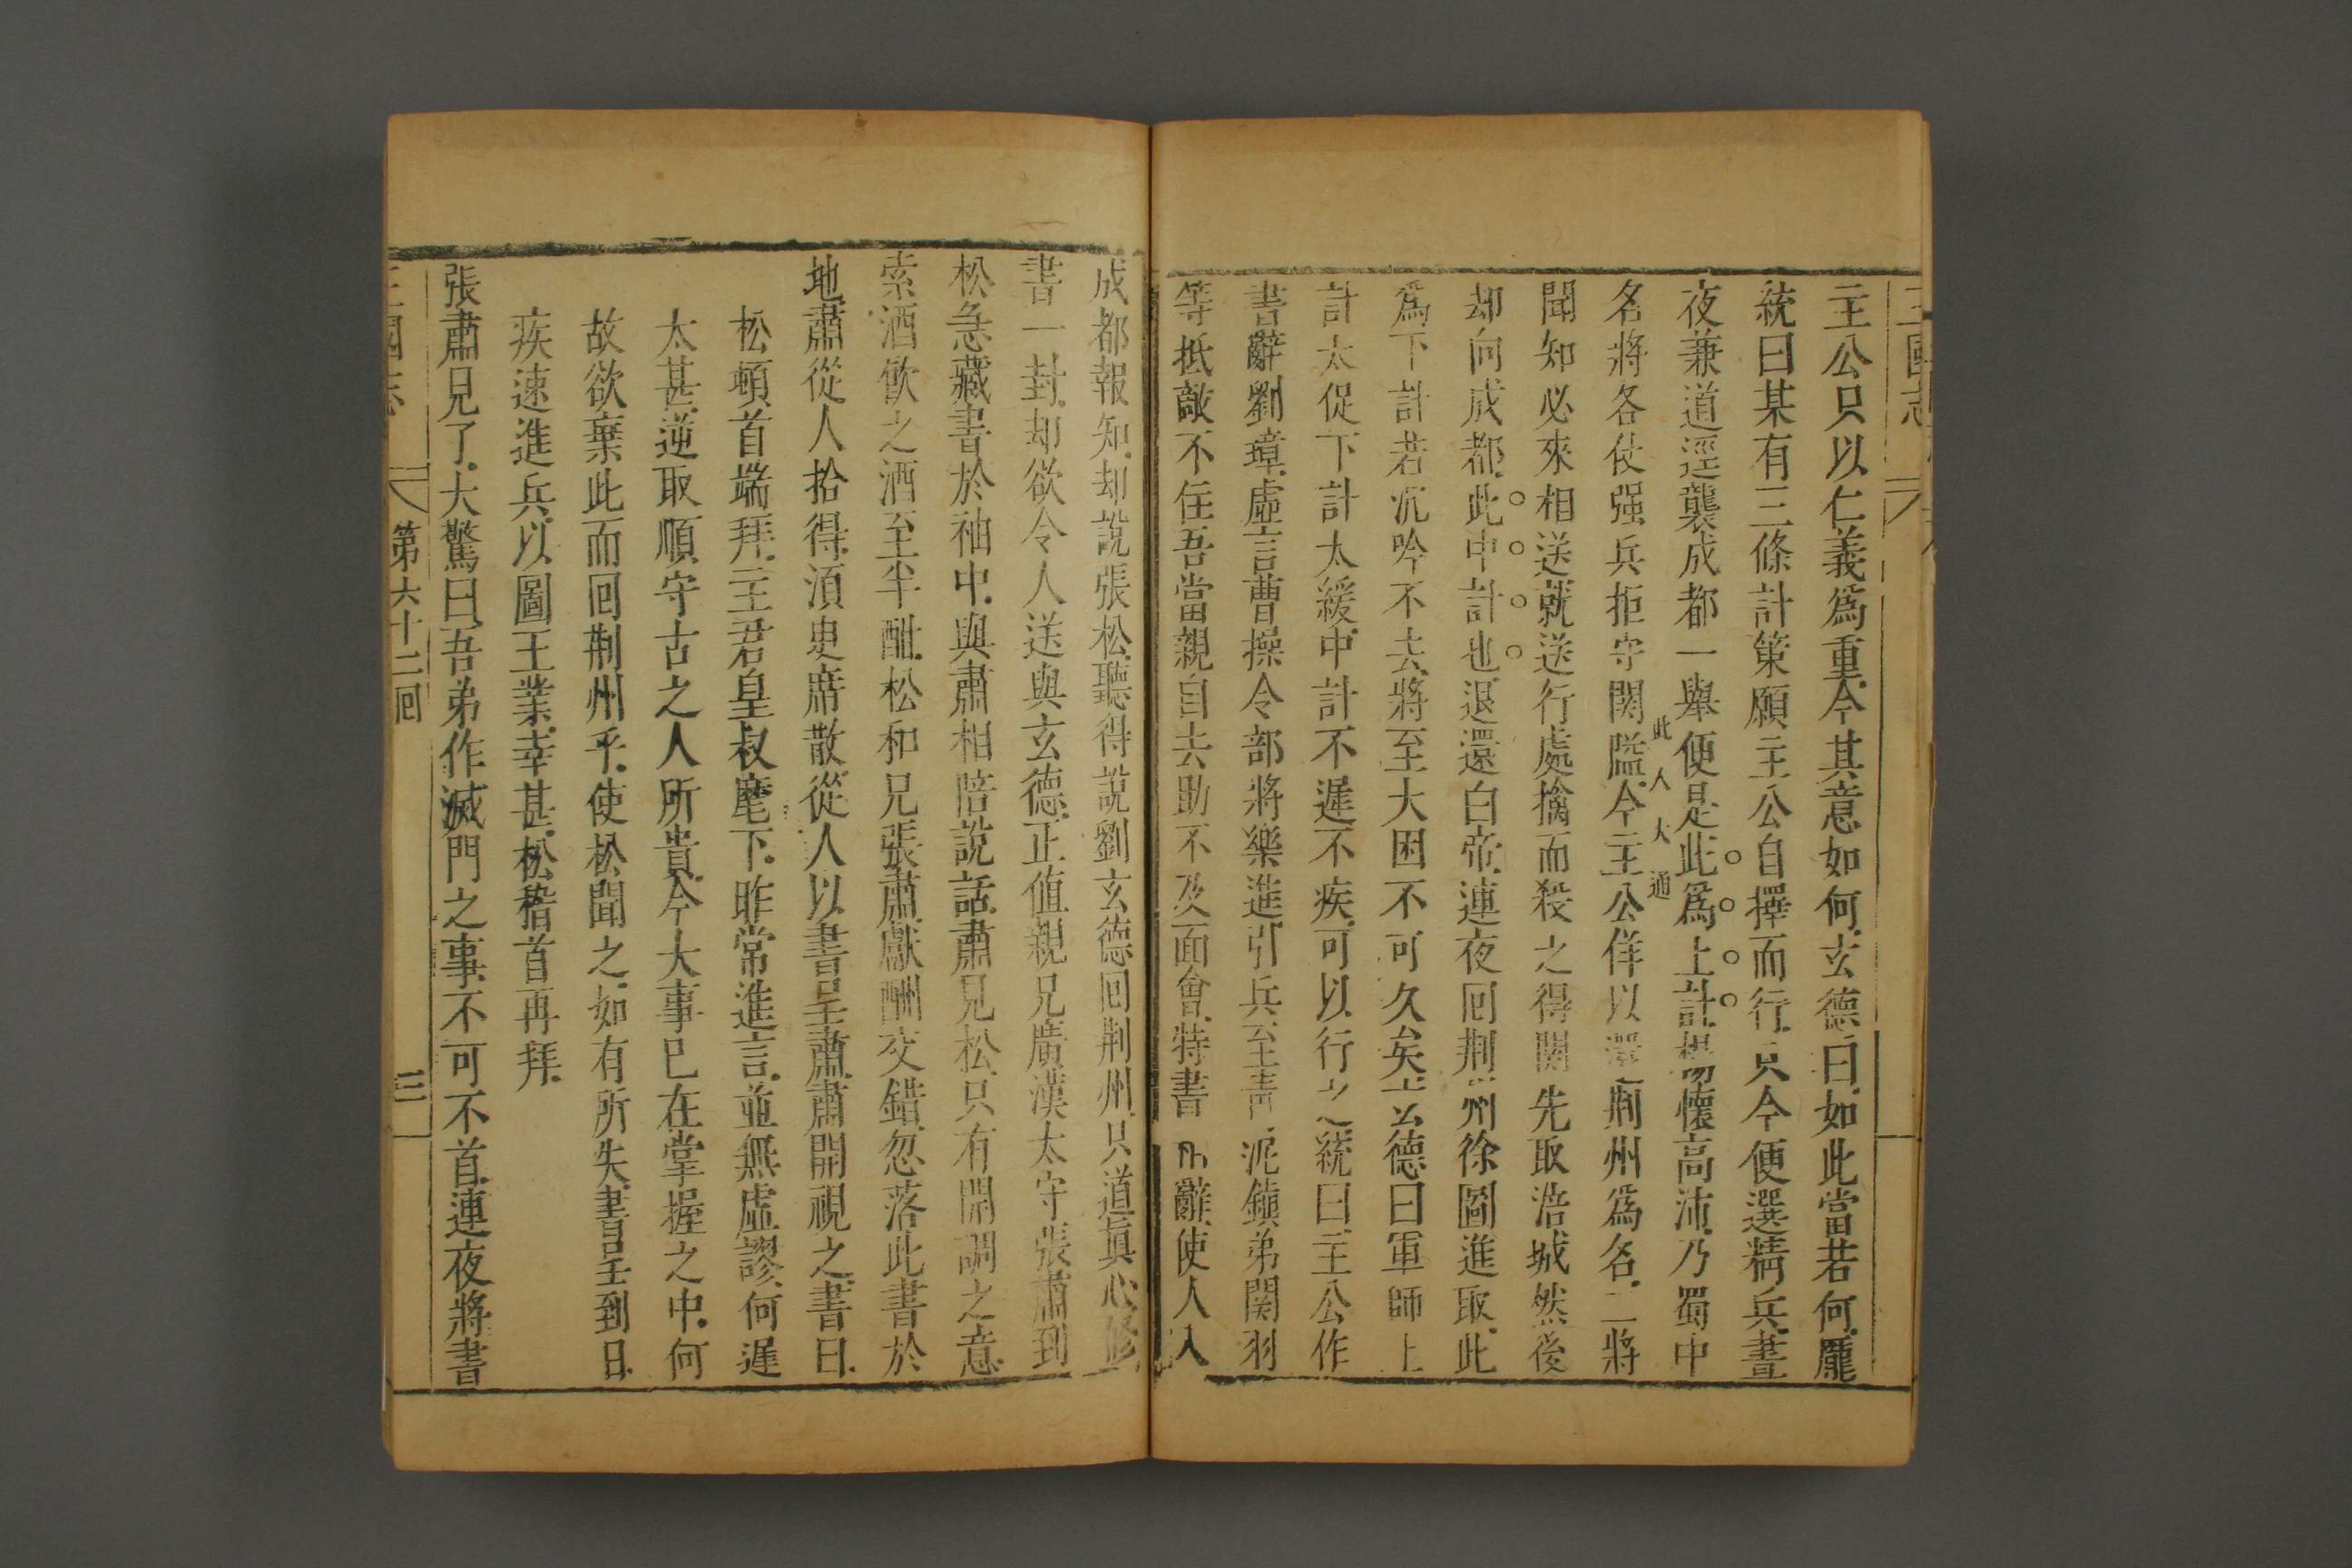 三國志
主公只以仁義為重今其意如何玄德曰如此當若何龐
統曰某有三條計策願主公自擇而行只今便選精兵晝
夜兼道逕襲成都一舉便是此為上計楊懷高沛乃蜀中
此人大通
名將各仗强兵拒守関隘今主公佯以還荆州為名二將
聞知必來相送就送行處擒而殺之得関先取涪城然後
却向成都此中計也退還白帝連夜回荆州徐圖進取此
為下計若沉吟不去將至大困不可久矣玄德曰軍師上
計太促下計太緩中計不遲不疾可以行之統曰主公作
書辭劉璋虛言曹操令部將樂進引兵至青泥鎮弟関羽
等抵敵不住吾當親自去助不及面會特書 辭使人入
成都報知却說張松聽得說劉玄德回荆州只道真心修
書一封却欲令人送與玄德正值親兄廣漢太守張肅到
松急藏書於袖中與肅相陪說話肅見松只有開調之意
索酒飲之酒至半酣松和兄張肅獻酬交錯忽落此書於
地肅從人拾得須臾席散從人以書呈肅肅開視之書曰
松頓首端拜主君皇叔麾下昨常進言並無虛謬何遲
太甚逆取順守古之人所貴今大事已在掌握之中何
故欲棄此而回荆州乎使松聞之如有所失書呈到日
疾速進兵以圖王業幸甚松稽首再拜
張肅見了大驚曰吾弟作滅門之事不可不首連夜將書
三國志 第六十二回 三